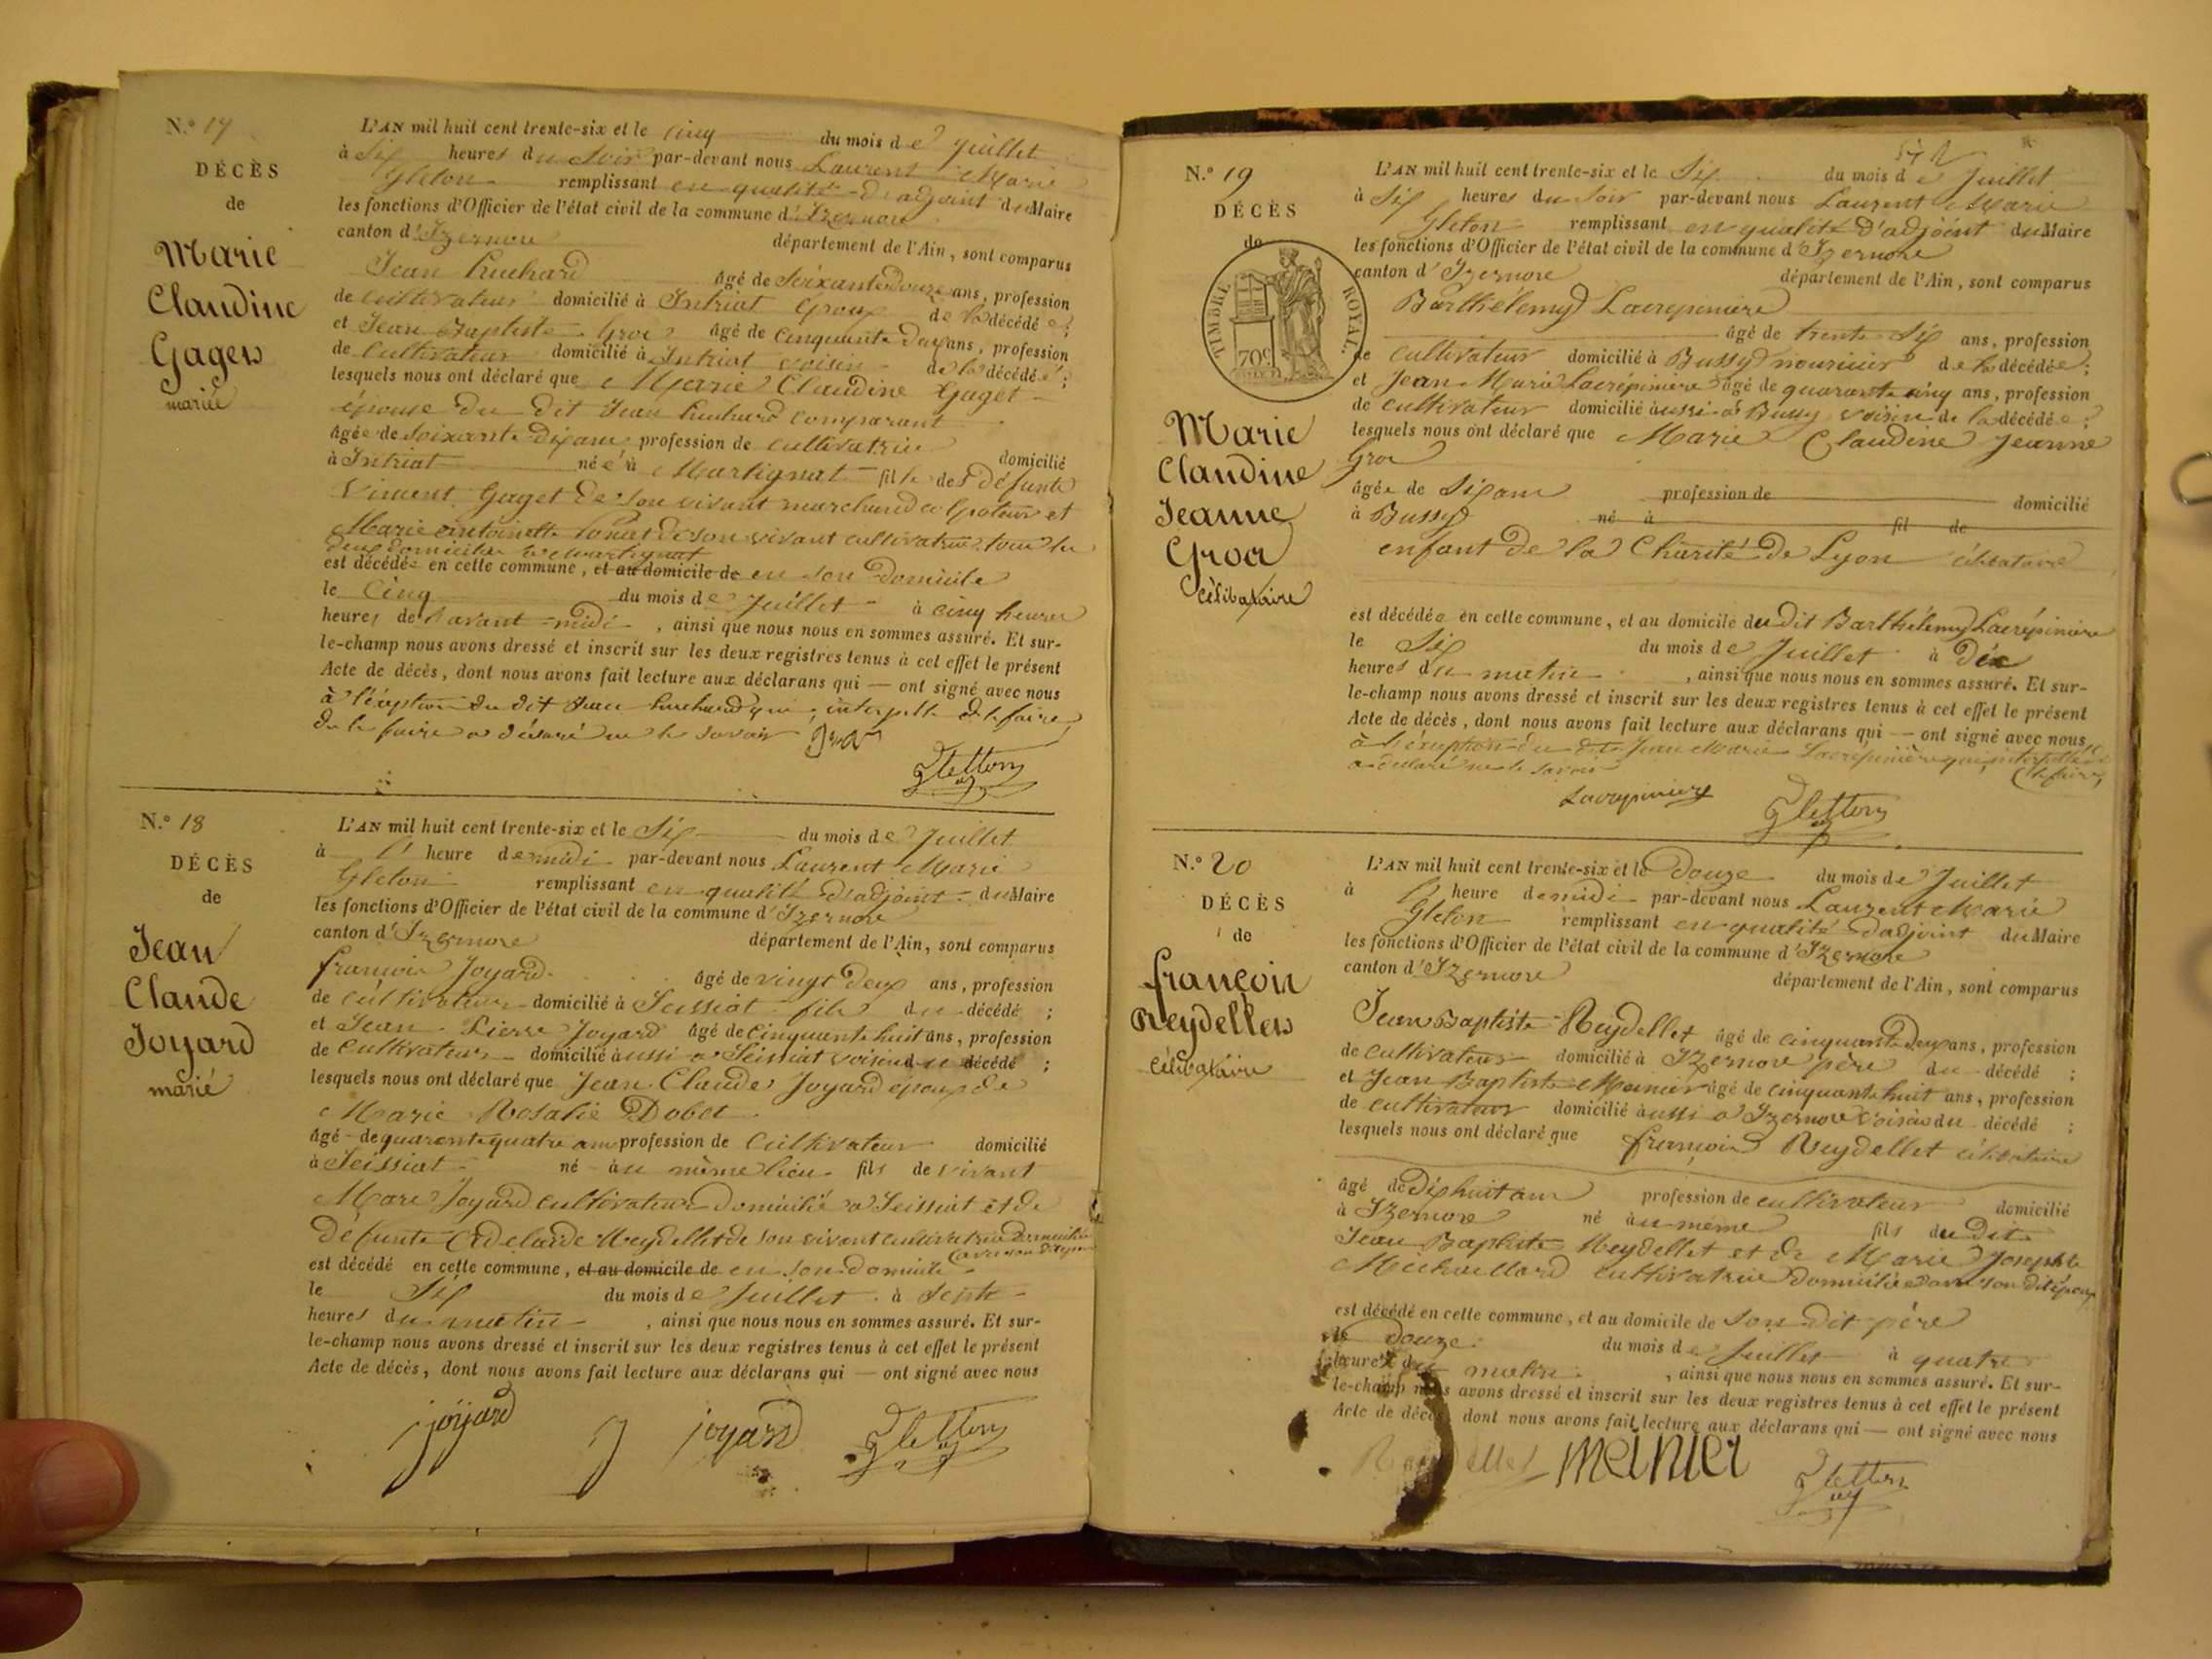 N.º 17
DÉCÈS
de
Marie
Claudine
Gaget
mariée
L'AN mil huit cent trente-six et le cinq du mois de Juillet
à Six heures du Soir par-devant nous Laurent Marie
Gleton remplissant en qualité d'adjoint du Maire
les fonctions d'Officier de l'état civil de la commune d'Izernore
canton d'Izernore département de l'Ain, sont comparus
Jean âgé de Soixante Douze ans, profession
de cultivateur domicilié à Intriat époux de la décédée ;
et Jean Baptiste âgé de cinquante Deux ans, profession
de Cultivateur domicilié à Intriat voisin de la décédée ;
lesquels nous ont déclaré que Marie Claudine Gaget
épouse du dit Jean comparant
âgée de Soixante Dix ans profession de cultivatrice domicilié
à Intriat née à Martignat fille de Défunts
Vincent Gaget de son vivant marchand et
Marie Antoinette de son vivant cultivatrice tous les
deux domiciliés à Martignat
est décédée en cette commune, et au domicile de en son Domicile
le Cinq du mois de Juillet à cinq heures
heures de l'avant-midi, ainsi que nous nous en sommes assuré. Et sur-
le-champ nous avons dressé et inscrit sur les deux registres tenus à cet effet le présent
Acte de décès, dont nous avons fait lecture aux déclarans qui — ont signé avec nous
à l'exeption du dit Jean qui, interpellé de le faire,
de le faire a déclaré ne le savoir
Gletton
N.º 18
DÉCÈS
de
Jean
Claude
Joyard
marié
L'AN mil huit cent trente-six et le Six du mois de Juillet
à heure de midi par-devant nous Laurent Marie
Gleton remplissant en qualité d'adjoint du Maire
les fonctions d'Officier de l'état civil de la commune d'Izernore
canton d'Izernore département de l'Ain, sont comparus
françois Joyard âgé de vingt Deux ans, profession
de cultivateur domicilié à Seissiat fils du décédé ;
et Jean Pierre Joyard âgé de Cinquante huit ans, profession
de Cultivateur domicilié aussi a Seissiat voisin du décédé ;
lesquels nous ont déclaré que Jean Claude Joyard époux de
Marie Rosalie Dobet
âgé de quarente quatre ans profession de Cultivateur domicilié
à Seissiat né au même lieu fils de vivant
Marc Joyard cultivateur Domicilié a Seissiat et de
Défunte Adelaïde Reydellet de son vivant cultivatrice Domiciliée
avec son Dit époux
est décédé en cette commune, et au domicile de en son Domicile
le Six du mois de Juillet à Sept
heures du matin, ainsi que nous nous en sommes assuré. Et sur-
le-champ nous avons dressé et inscrit sur les deux registres tenus à cet effet le présent
Acte de décès, dont nous avons fait lecture aux déclarans qui — ont signé avec nous
joyard joyard Gletton
N.º 19
DÉCÈS
de
TIMBRE ROYAL.
70c
Marie
Claudine
Jeanne
Groa
Célibataire
L'AN mil huit cent trente-six et le Six du mois de Juillet
à Six heures du Soir par-devant nous Laurent Marie
Gleton remplissant en qualité d'adjoint du Maire
les fonctions d'Officier de l'état civil de la commune d'Izernore
canton d'Izernore département de l'Ain, sont comparus
Barthélemy Lacrépinière
âgé de trente Six ans, profession
de cultivateur domicilié à Bussy nouricier de la décédée ;
et Jean Marie Lacrépinière âgé de quarante cinq ans, profession
de cultivateur domicilié aussi a Bussy voisin de la décédée ;
lesquels nous ont déclaré que Marie Claudine Jeanne
Groa
âgée de Six ans profession de domicilié
à Bussy né à fil de
enfant de la Charité de Lyon célibataire
est décédée en cette commune, et au domicile du dit Barthélemy Lacrépinière
le Six du mois de Juillet à Dix
heures du matin, ainsi que nous nous en sommes assuré. Et sur-
le-champ nous avons dressé et inscrit sur les deux registres tenus à cet effet le présent
Acte de décès, dont nous avons fait lecture aux déclarans qui — ont signé avec nous
à l'exeption du dit Jean Marie Lacrépinière qui, interpellé de
le faire,
a déclaré ne le savoir
Lacrepiniere Gletton
N.º 20
DÉCÈS
de
françois
Reydellet
Célibataire
L'AN mil huit cent trente-six et le Douze du mois de Juillet
à heure de midi par-devant nous Laurent Marie
Gleton remplissant en qualité d'adjoint du Maire
les fonctions d'Officier de l'état civil de la commune d'Izernore
canton d'Izernore département de l'Ain, sont comparus
Jean Baptiste Reydellet âgé de cinquante Deux ans, profession
de cultivateur domicilié à Izernore père du décédé ;
et Jean Baptiste Meinier âgé de cinquante huit ans, profession
de cultivateur domicilié aussi a Izernore voisin du décédé ;
lesquels nous ont déclaré que françois Reydellet célibataire
âgé de Dix huit ans profession de cultivateur domicilié
à Izernore né au même fils du Dit
Jean Baptiste Reydellet et de Marie Josephte
cultivatrice Domiciliée avec son dit époux
est décédé en cette commune, et au domicile de Son Dit père
le Douze du mois de Juillet à quatre
heures du matin, ainsi que nous nous en sommes assuré. Et sur-
le-champ nous avons dressé et inscrit sur les deux registres tenus à cet effet le présent
Acte de décès, dont nous avons fait lecture aux déclarans qui — ont signé avec nous
Reydellet meinier Gletton